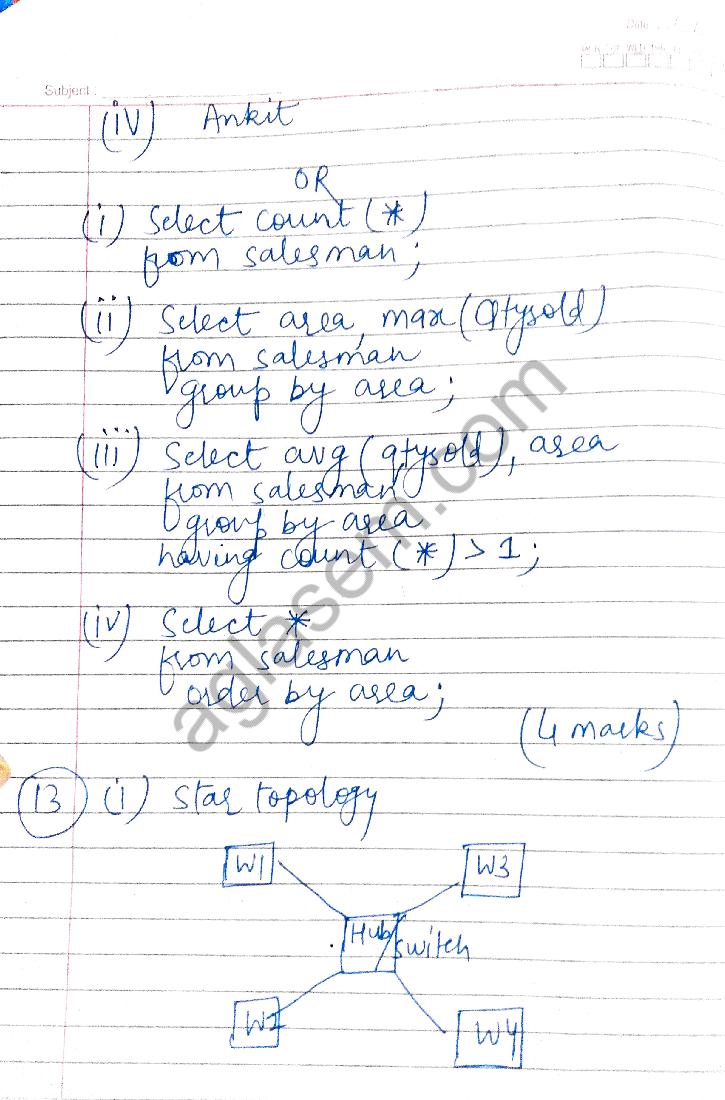 Date
Subject :
(iv) Ankit
OR
(i) Select count (*)
from salesman ;
(ii) Select area, max (Qtysold)
from salesman
group by area ;
(iii) Select avg (qtysold), area
from salesman
group by area
having count (*) > 1 ;
(iv) Select *
from salesman
order by area ;
(4 marks)
13 (i) Star topology
W1 W3
Hub/switch
W2 W4
aglasem.com